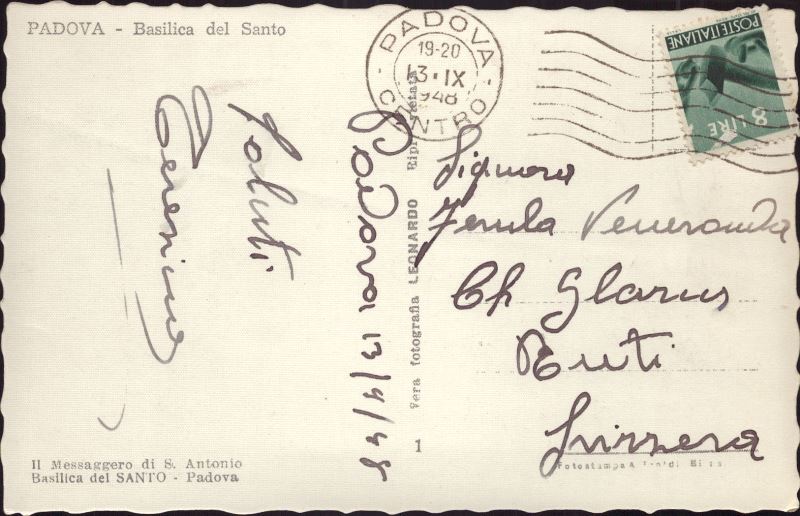 PADOVA - Basilica del Santo
PADOVA
CENTRO
19-20
13·IX
1948
POSTE ITALIANE
8 LIRE
Saluti
Teresina
Padova 13/9/48
Signora
Ferula Veneranda
Ch Glarus
Ruti
Svizzera
1 Vera fotografia LEONARDO Ripr. vietata
Il Messaggero di S. Antonio
Basilica del SANTO - Padova
Fotostampa